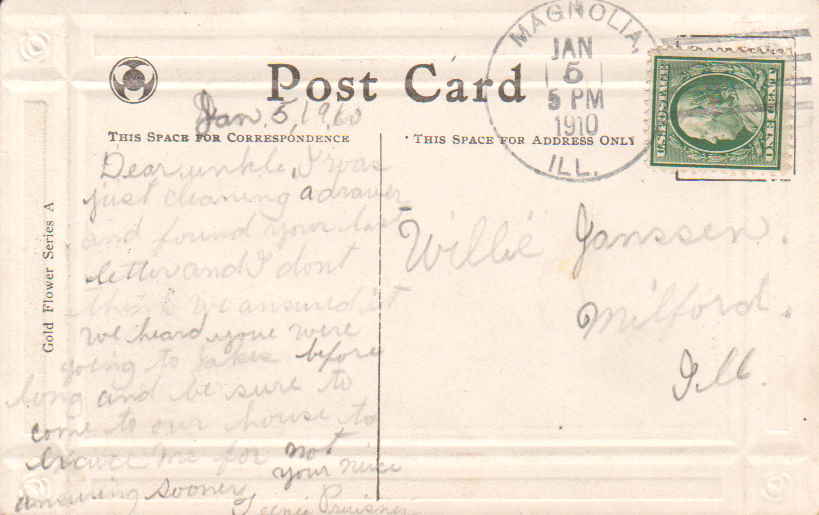 MAGNOLIA,
JAN
5
5 PM
1910
ILL.
U.S. POSTAGE
ONE CENT
Post Card
Jan. 5, 1910
THIS SPACE FOR CORRESPONDENCE
THIS SPACE FOR ADDRESS ONLY
Gold Flower Series A
Dear unkle, I was
just cleaning a drawer
and found your last
letter and I dont
think we ansured it
we heard youe were
going to before
long and be sure to
come to our house to
me for not
ansuring sooner
your niece
Willie Janssen.
Milford.
Ill.